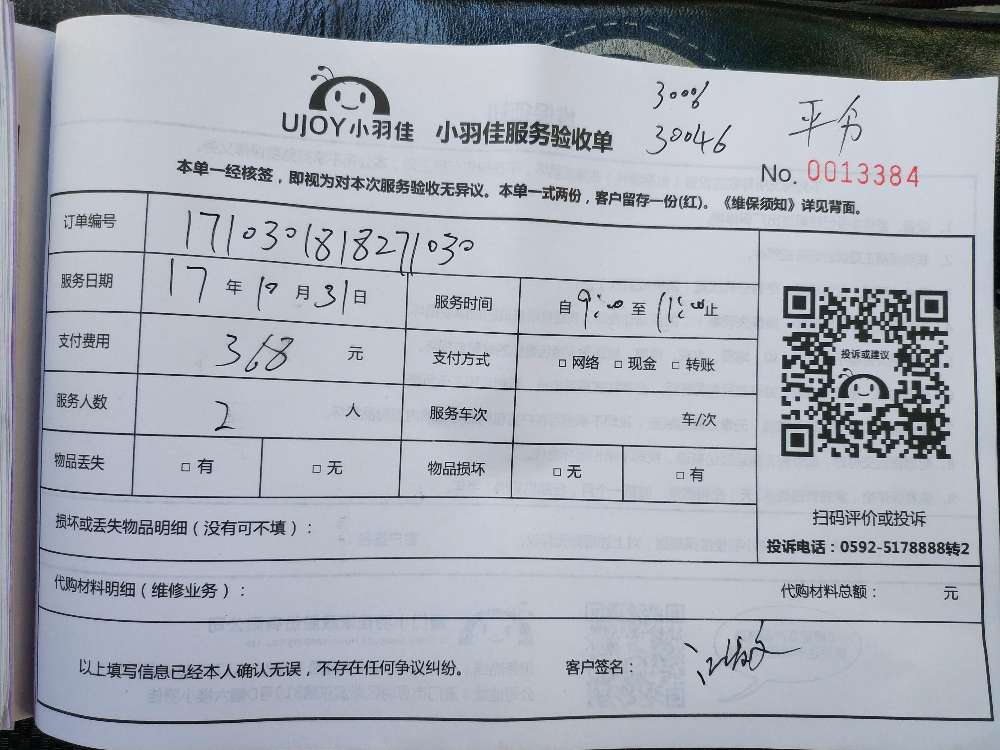 3006
30046
平分
UJOY小羽佳 小羽佳服务验收单
No. 0013384
本单一经核签，即视为对本次服务验收无异议。本单一式两份，客户留存一份(红)。《维保须知》详见背面。
订单编号 1710301818271030
服务日期 17 年 10 月 31 日 服务时间 自 9:00 至 11:00 止
支付费用 368 元 支付方式 □ 网络 □ 现金 □ 转账
投诉或建议
服务人数 2 人 服务车次 车/次
物品丢失 □ 有 □ 无 物品损坏 □ 无 □ 有
扫码评价或投诉
损坏或丢失物品明细（没有可不填）：
投诉电话：0592-5178888转2
代购材料明细（维修业务）： 代购材料总额： 元
以上填写信息已经本人确认无误，不存在任何争议纠纷。 客户签名：